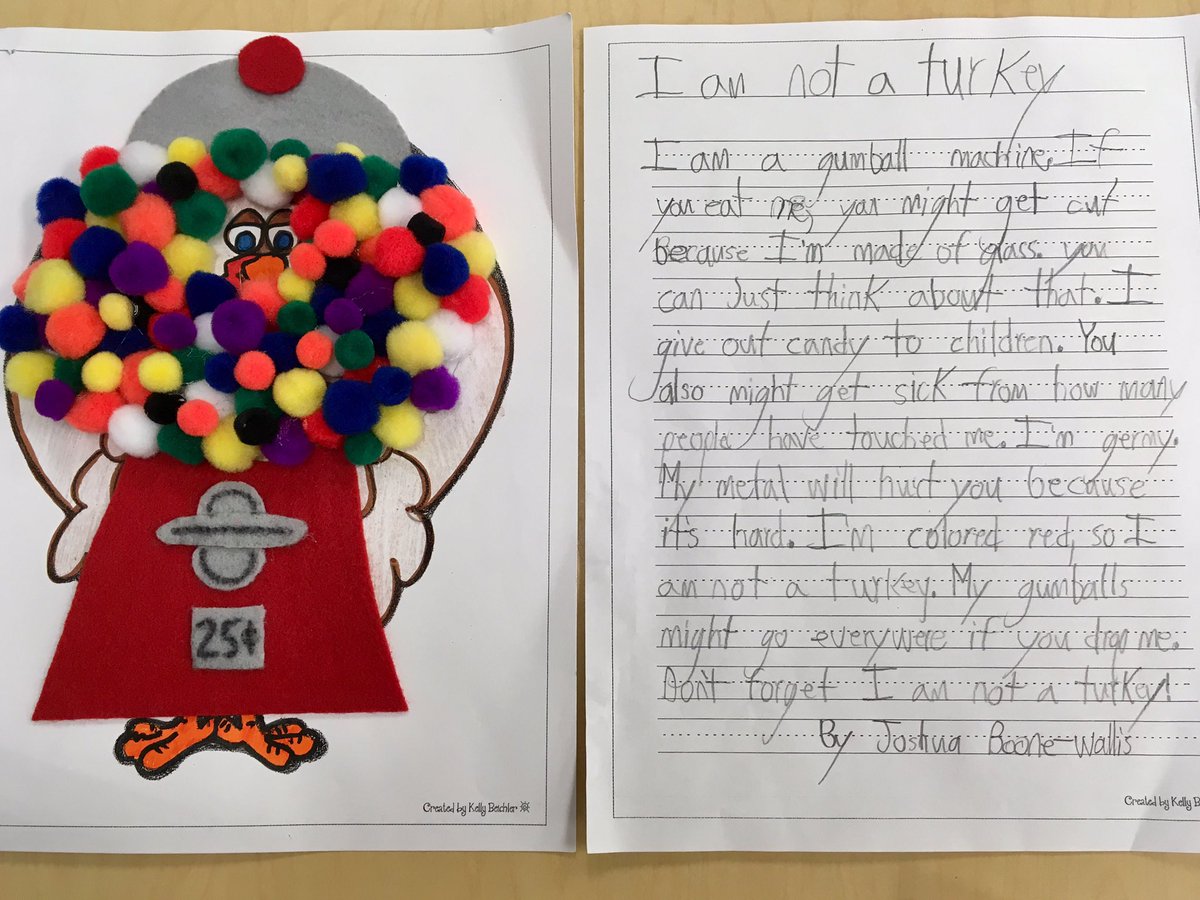 25¢
Created by Kelly Beichler
I am not a turkey
I am a gumball machine. If
you eat me, you might get cut
Because I'm made of glass. you
can Just think about that. I
give out candy to children. You
also might get sick from how many
people have touched me. I'm germy.
My metal will hurt you because
it's hard. I'm colored red, so I
am not a turkey. My gumballs
might go everywere if you drop me.
Don't forget I am not a turkey!
By Joshua Boone-Wallis
Created by Kelly Be